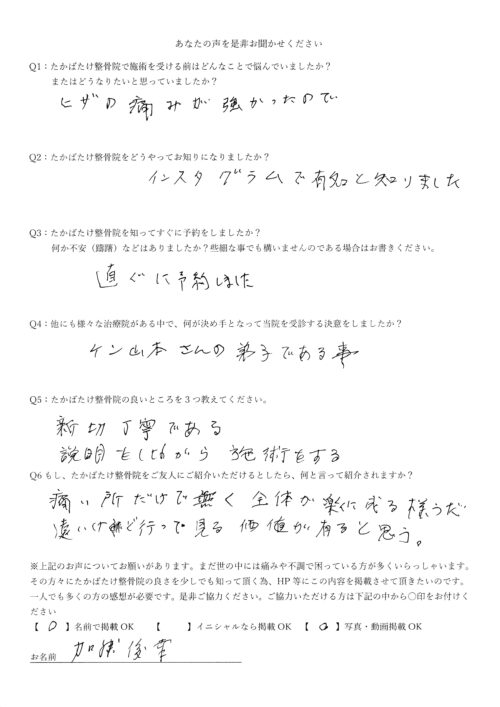 あなたの声を是非お聞かせください
Q1：たかばたけ整骨院で施術を受ける前はどんなことで悩んでいましたか？
またはどうなりたいと思っていましたか？
ヒザの痛みが強かったので
Q2：たかばたけ整骨院をどうやってお知りになりましたか？
インスタグラムで有名と知りました
Q3：たかばたけ整骨院を知ってすぐに予約をしましたか？
何か不安（躊躇）などはありましたか？些細な事でも構いませんのである場合はお書きください。
直ぐに予約しました
Q4：他にも様々な治療院がある中で、何が決め手となって当院を受診する決意をしましたか？
ケン山本さんの弟子である事
Q5：たかばたけ整骨院の良いところを３つ教えてください。
新切丁寧である
説明をしながら施術をする
Q6 もし、たかばたけ整骨院をご友人にご紹介いただけるとしたら、何と言って紹介されますか？
痛い所だけで無く全体が楽に成る様うだ
遠いけど行って見る価値が有ると思う。
※上記のお声についてお願いがあります。まだ世の中には痛みや不調で困っている方が多くいらっしゃいます。
その方々にたかばたけ整骨院の良さを少しでも知って頂く為、HP 等にこの内容を掲載させて頂きたいのです。
一人でも多くの方の感想が必要です。是非ご協力ください。ご協力いただける方は下記の中から○印をお付けく
ださい
【 〇 】名前で掲載 OK 【 】イニシャルなら掲載 OK 【 〇 】写真・動画掲載 OK
お名前 加